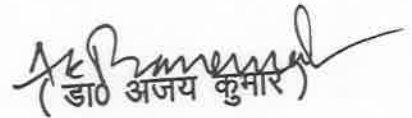 ( डा0 अजय कुमार )